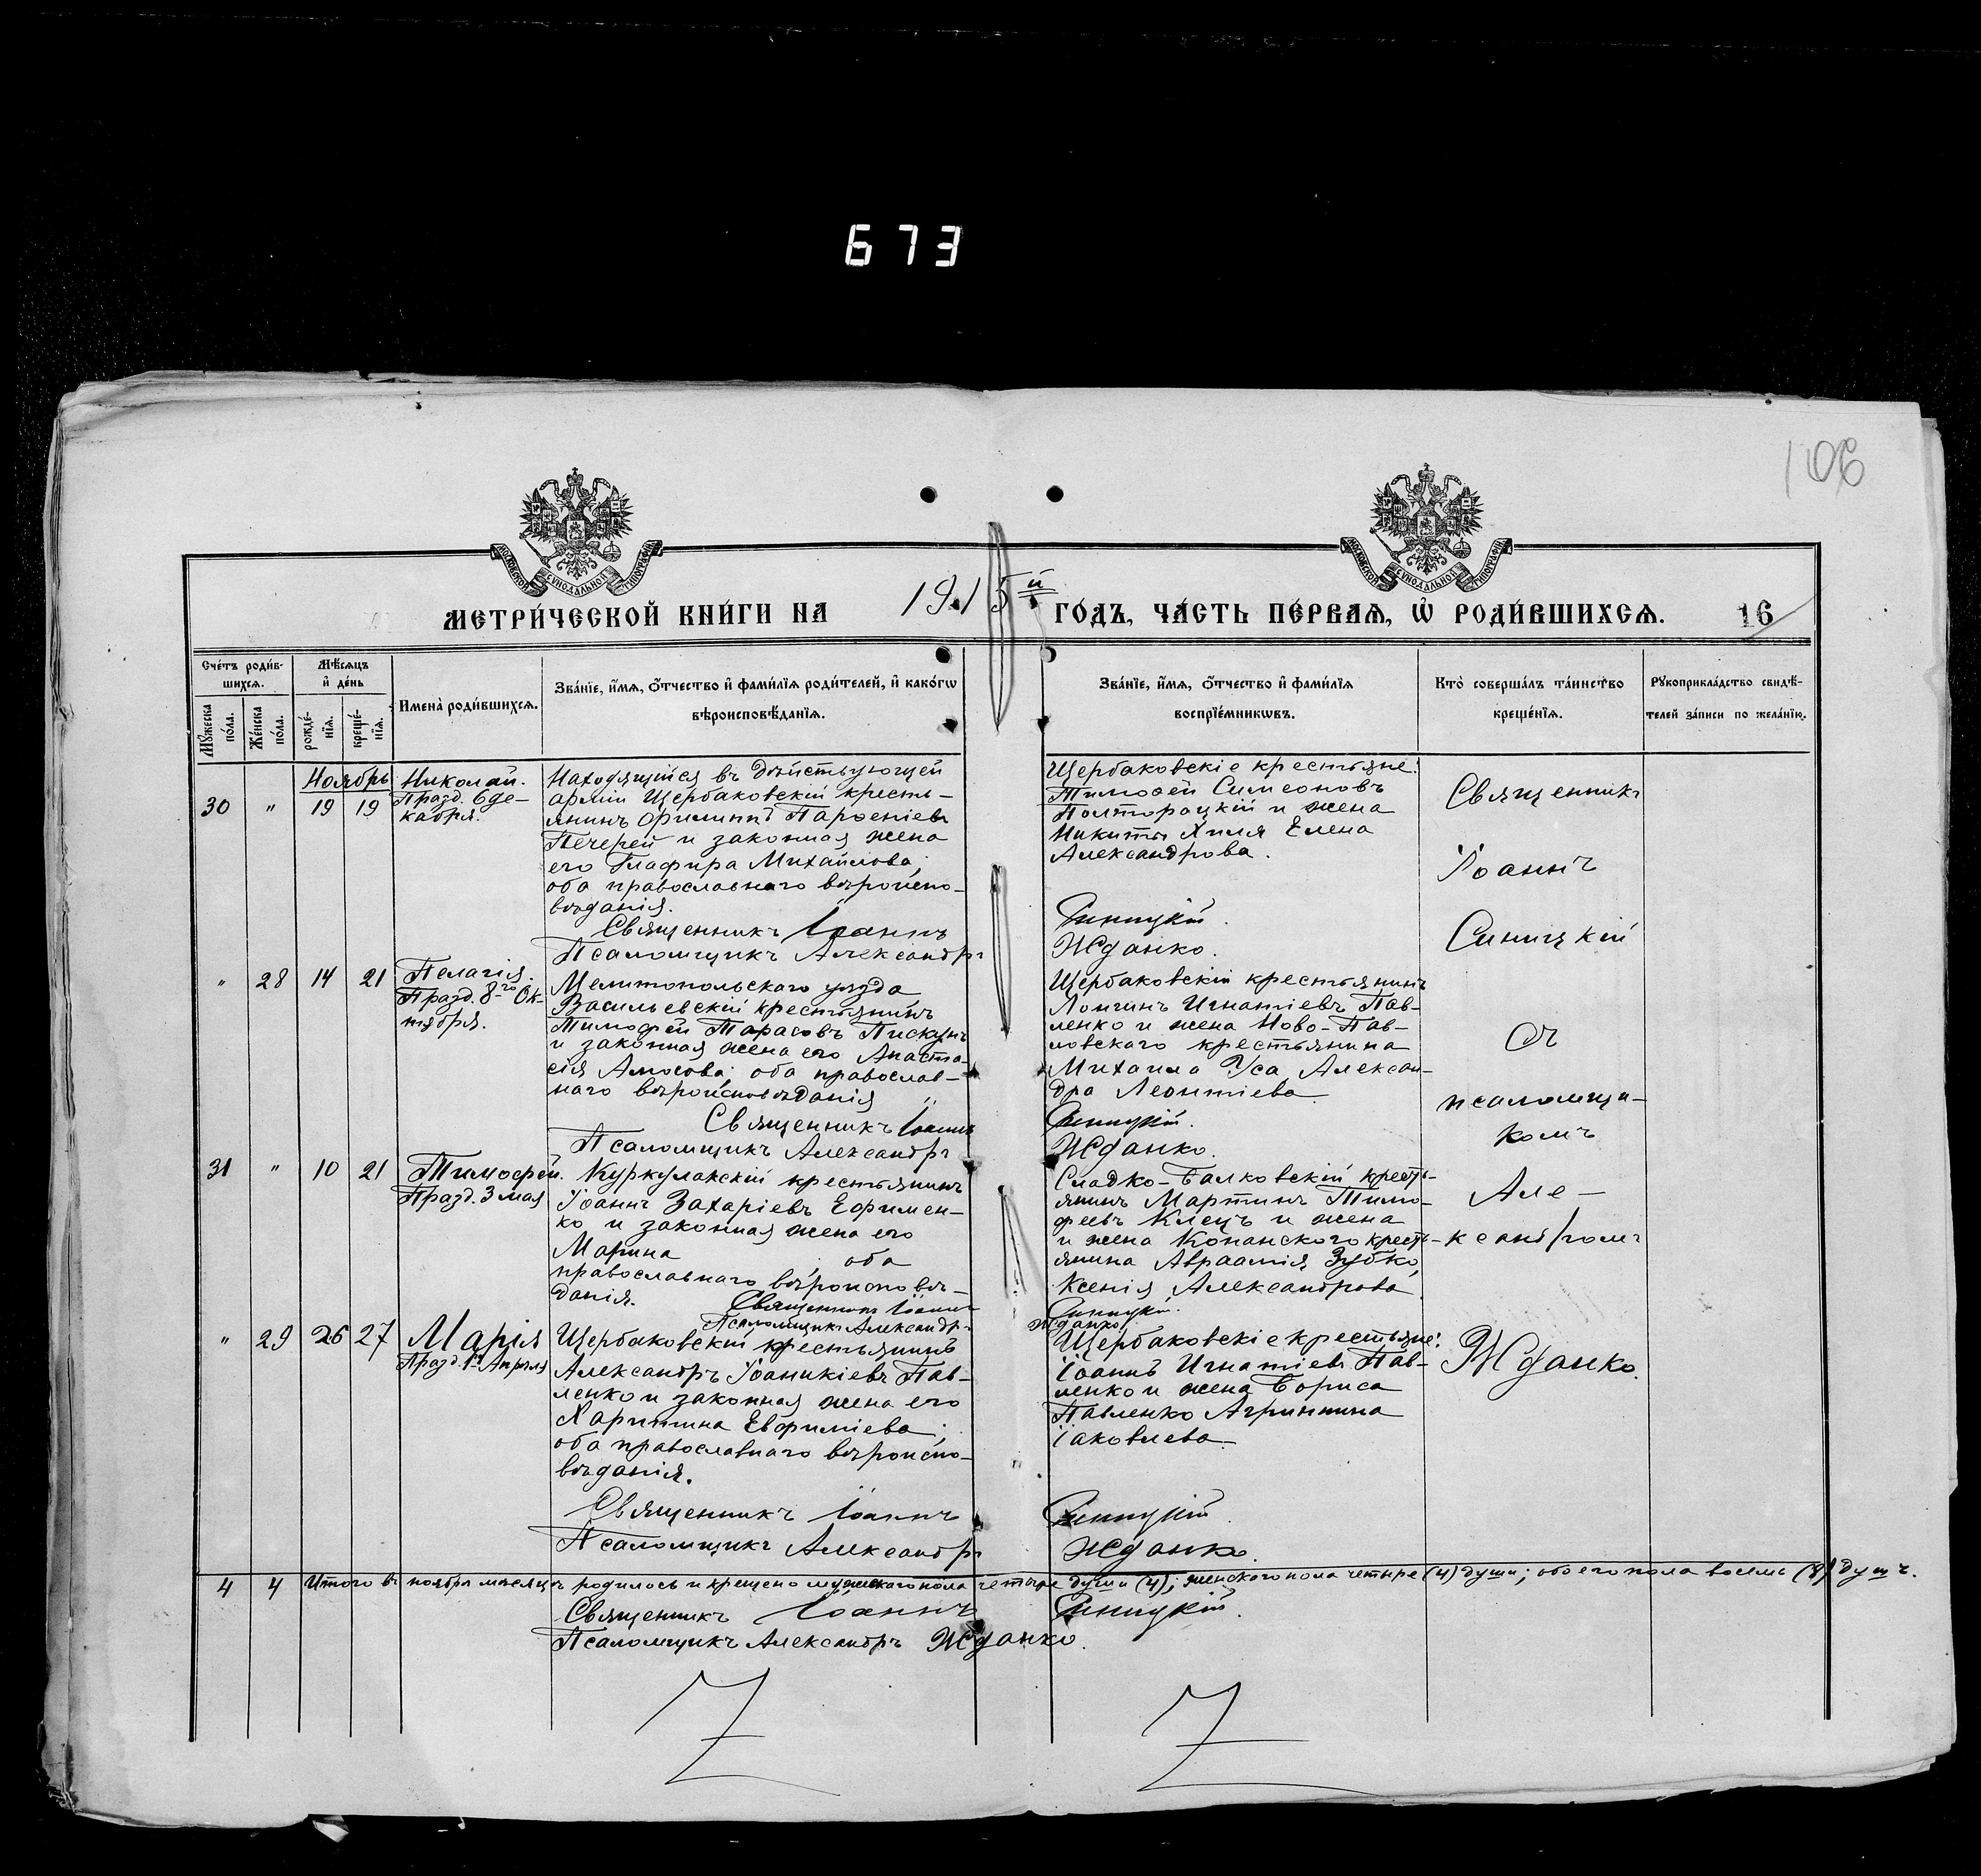 673
106
МОСКОВСКОЙ СѴНОДАЛЬНОЙ ТИПОГРАФІИ
МОСКОВСКОЙ СѴНОДАЛЬНОЙ ТИПОГРАФІИ
МЕТРИ́ЧЕСКОЙ КНИ́ГИ НА 1915й ГО́ДЪ, ЧА́СТЬ ПЕ́РВАѦ, Ѡ҆ РОДИ́ВШИХСѦ. 16
Сче́тъ роди́в-
шихсѧ.
Мѣ́сѧцъ
и҆ де́нь
Мꙋ́жеска
по́ла.
Же́нска
по́ла.
рожде́-
нїѧ.
креще́-
нїѧ.
Имена̀ роди́вшихсѧ.
Зва́нїе, и҆́мѧ, ѻ҆́тчество и҆ фами́лїѧ роди́телей, и҆ како́гѡ
вѣроисповѣ́данїѧ.
Зва́нїе, и҆́мѧ, ѻ҆́тчество и҆ фами́лїѧ
воспрїе́мникѡвъ.
Кто̀ соверша́лъ та́инство
креще́нїѧ.
Рꙋкоприкла́дство свидѣ́-
телей за́писи по жела́нїю.
Ноябрь
30 " 19 19
Николай.
Празд. 6 де-
кабря.
Находящійся въ дѣйствующей
арміи Щербаковскій кресть-
янинъ Филиппъ Парѳеніевъ
Печерей и законная жена
его Глафира Михайлова;
оба православнаго вѣроиспо-
вѣданія.
Священникъ Іоаннъ
Псаломщикъ Александръ
Щербаковскіе крестьяне:
Тимоѳей Симеоновъ
Полторацкій и жена
Никиты Хиля Елена
Александрова.
Синицкій.
Жданко.
" 28 14 21
Пелагія.
Празд. 8-го Ок-
тября.
Мелитопольскаго уѣзда
Васильевскій крестьянинъ
Тимофей Тарасовъ Пискунъ
и законная жена его Анаста-
сія Амосова; оба православ-
наго вѣроисповѣданія
Священникъ Іоаннъ
Псаломщикъ Александръ
Щербаковскій крестьянинъ
Лонгинъ Игнатіевъ Пав-
ленко и жена Ново-Пав-
ловскаго крестьянина
Михаила Уса Алексан-
дра Леонтіева
Синицкій.
Жданко.
31 " 10 21
Тимофей.
Празд. 3 мая
Куркулакскій крестьянинъ
Іоаннъ Захаріевъ Ефимен-
ко и законная жена его
Марина ; оба
православнаго вѣроисповѣ-
данія.
Священникъ Іоаннъ
Псаломщикъ Александръ
Сладко-Балковскій кресть-
янинъ Мартинъ Тимо-
феевъ Клецъ и жена
и жена Копанского кресть-
янина Авраамія Зубко,
Ксенія Александрова
Синицкій.
Жданко
" 29 26 27
Марія
Празд. 1го Апрѣля
Щербаковскій крестьянинъ
Александръ Іоаникіевъ Пав-
ленко и законная жена его
Харитина Евфиміева;
оба православнаго вѣроиспо-
вѣданія.
Священникъ Іоаннъ
Псаломщикъ Александръ
Щербаковскіе крестьяне:
Іоаннъ Игнатіевъ Пав-
ленко и жена Бориса
Павленко Агриппина
Іаковлева
Синицкій.
Жданко.
Священникъ
Іоаннъ
Синицкій
Съ
псаломщи-
комъ
Але-
ксандромъ
Жданко.
4 4 Итого въ ноябрѣ мѣсяцѣ родилось и крещено мужскаго пола четыре души (4); женскаго пола четыре (4) души; обоего пола восемь (8) душъ.
Священникъ Іоаннъ Синицкій.
Псаломщикъ Александръ Жданко.